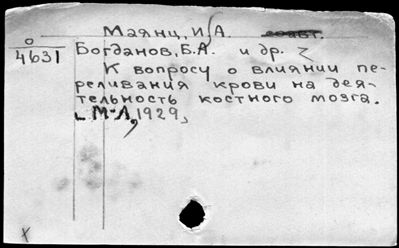 Маянц, И. А.
о
4631
Богданов, Б.А. и др.
К вопросу о влиянии пе-
реливания крови на дея-
тельность костного мозга.
М-Л, 1929,
х